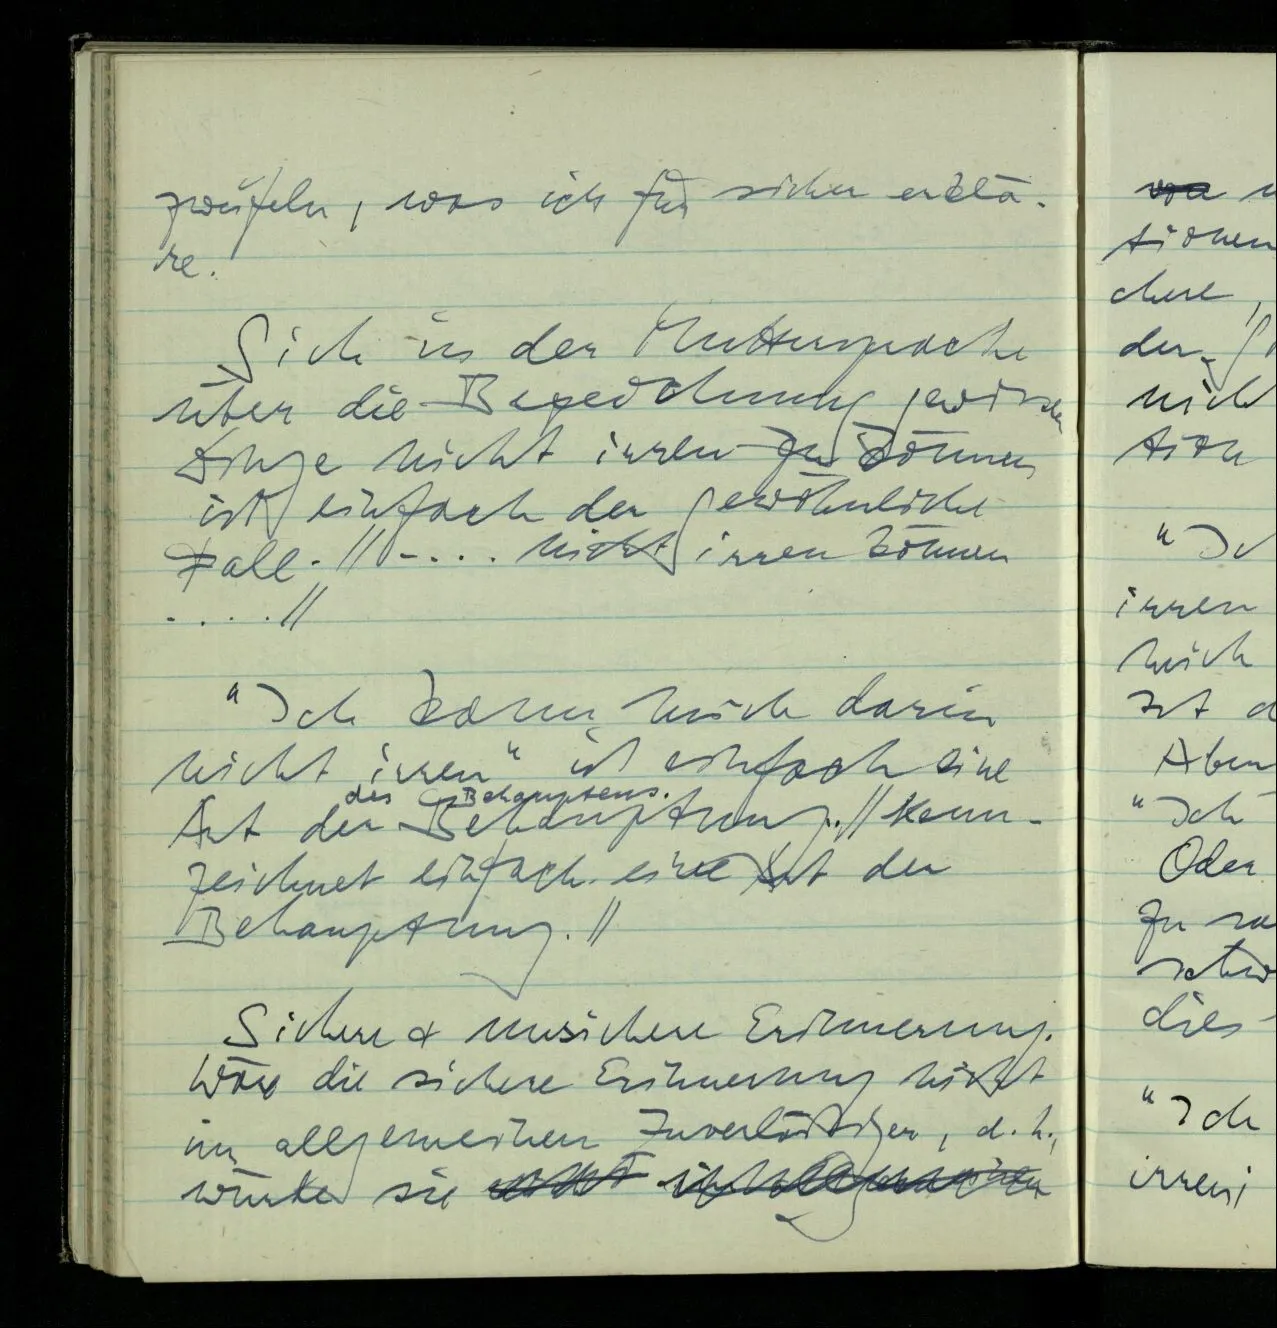 zweifeln, was ich für sicher erklä-
re.
Sich in der Muttersprache
über die Bezeichnung gewisser
Dinge nicht irren zu können
ist einfach der gewöhnliche
Fall. // – .... nicht irren können
.....//
"Ich kann mich darin
nicht irren" ist einfach eine
des Behauptens.
Art der Behauptung. // kenn-
zeichnet einfach eine Art der
Behauptung. //
Sichere & unsichere Erinnerung.
Wäre die sichere Erinnerung nicht
im allgemeinen zuverlässiger, d.h.,
würde sie
von
tionen
chere,
der
nich
tion
"Ich
irren
mich
ist
Aber
"Ich
Oder
zu sa
schw
dies
"Ich
irren